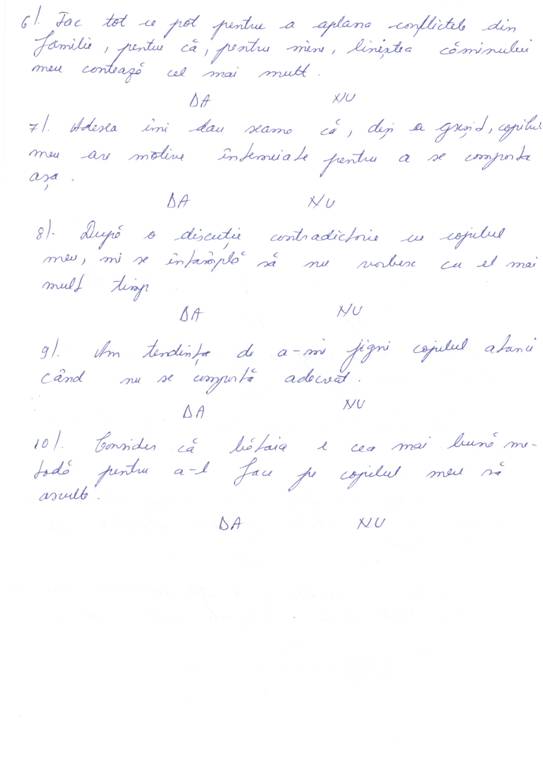 6/. Fac tot ce pot pentru a aplana conflictele din
familie, pentru că, pentru mine, liniștea căminului
meu contează cel mai mult.
DA NU
7/. Adesea îmi dau seama că, deși a greșit, copilul
meu are motive întemeiate pentru a se comporta
așa.
DA NU
8/. După o discuție contradictorie cu copilul
meu, mi se întâmplă să nu vorbesc cu el mai
mult timp
DA NU
9/. Am tendința de a-mi jigni copilul atunci
când nu se comportă adecvat.
DA NU
10/. Consider că bătaia e cea mai bună me-
todă pentru a-l face pe copilul meu să
asculte.
DA NU